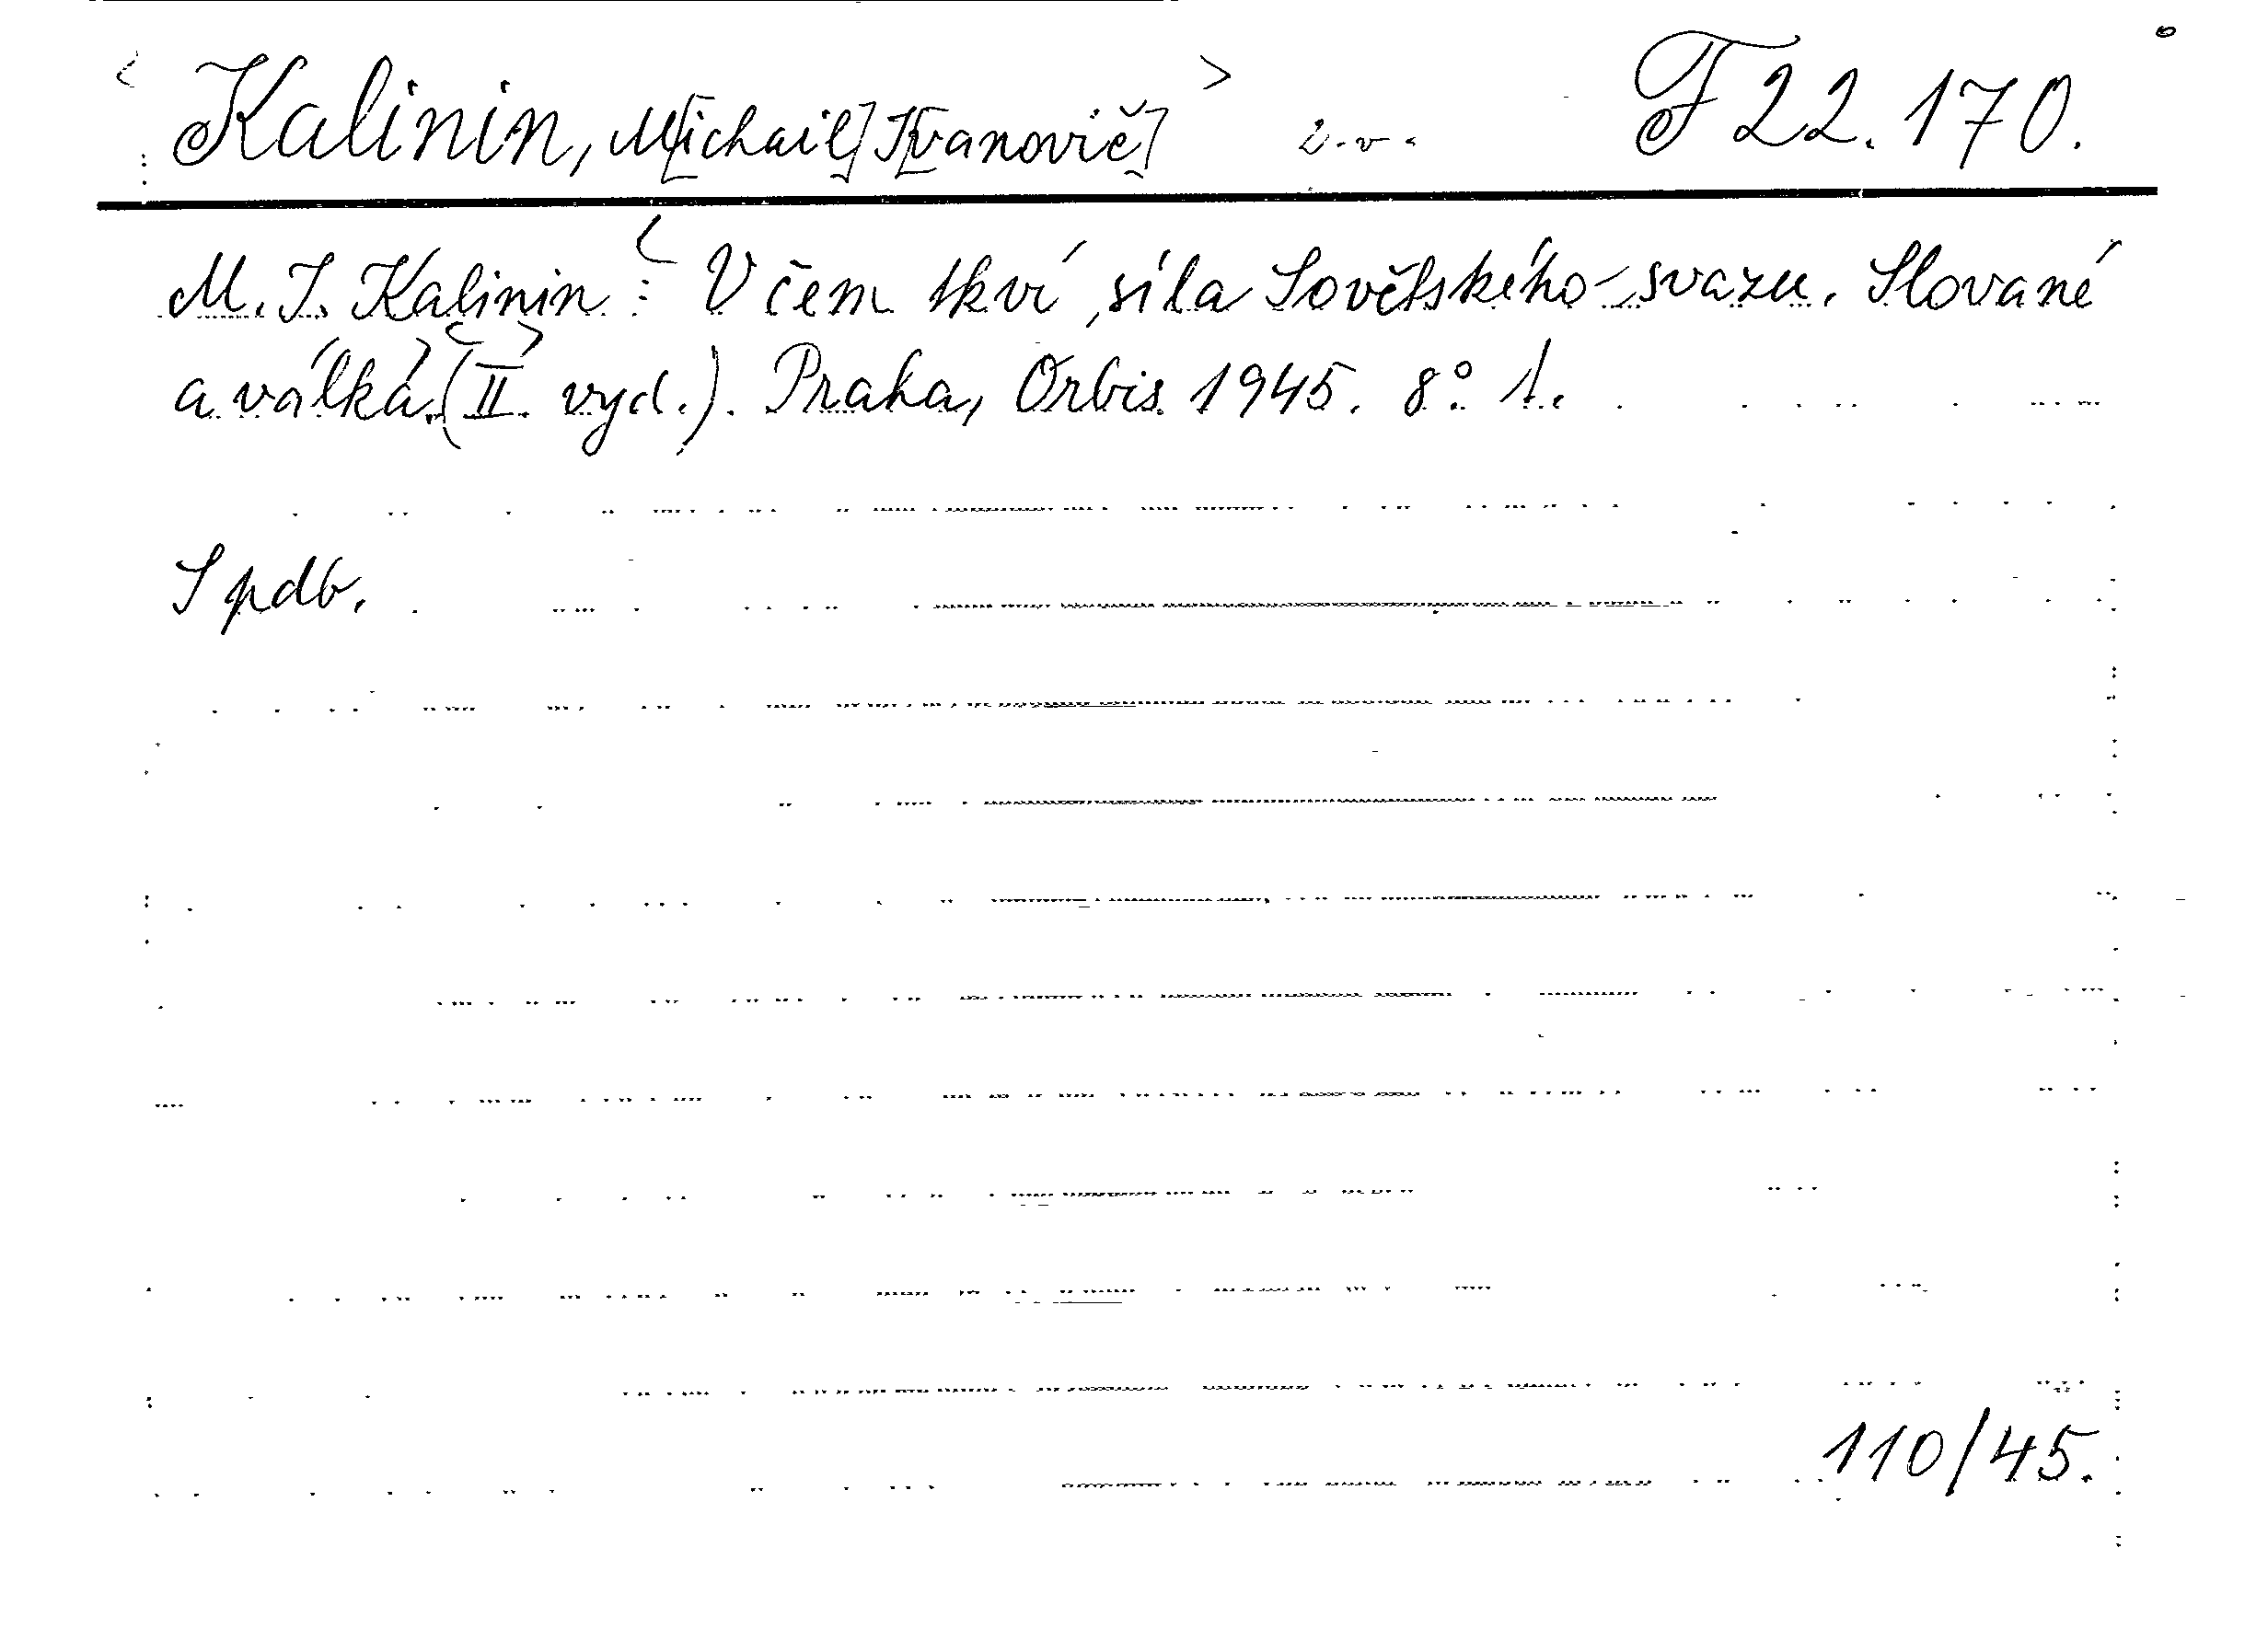 <Kalinin, M[ichail] I[vanovič]> F 22.170.
M. I. Kalinin: <V čem tkví síla Sovětského svazu. Slované
a válka.> (<II.> vyd.). Praha, Orbis 1945. 8° 1.
S pdb.
110/45.